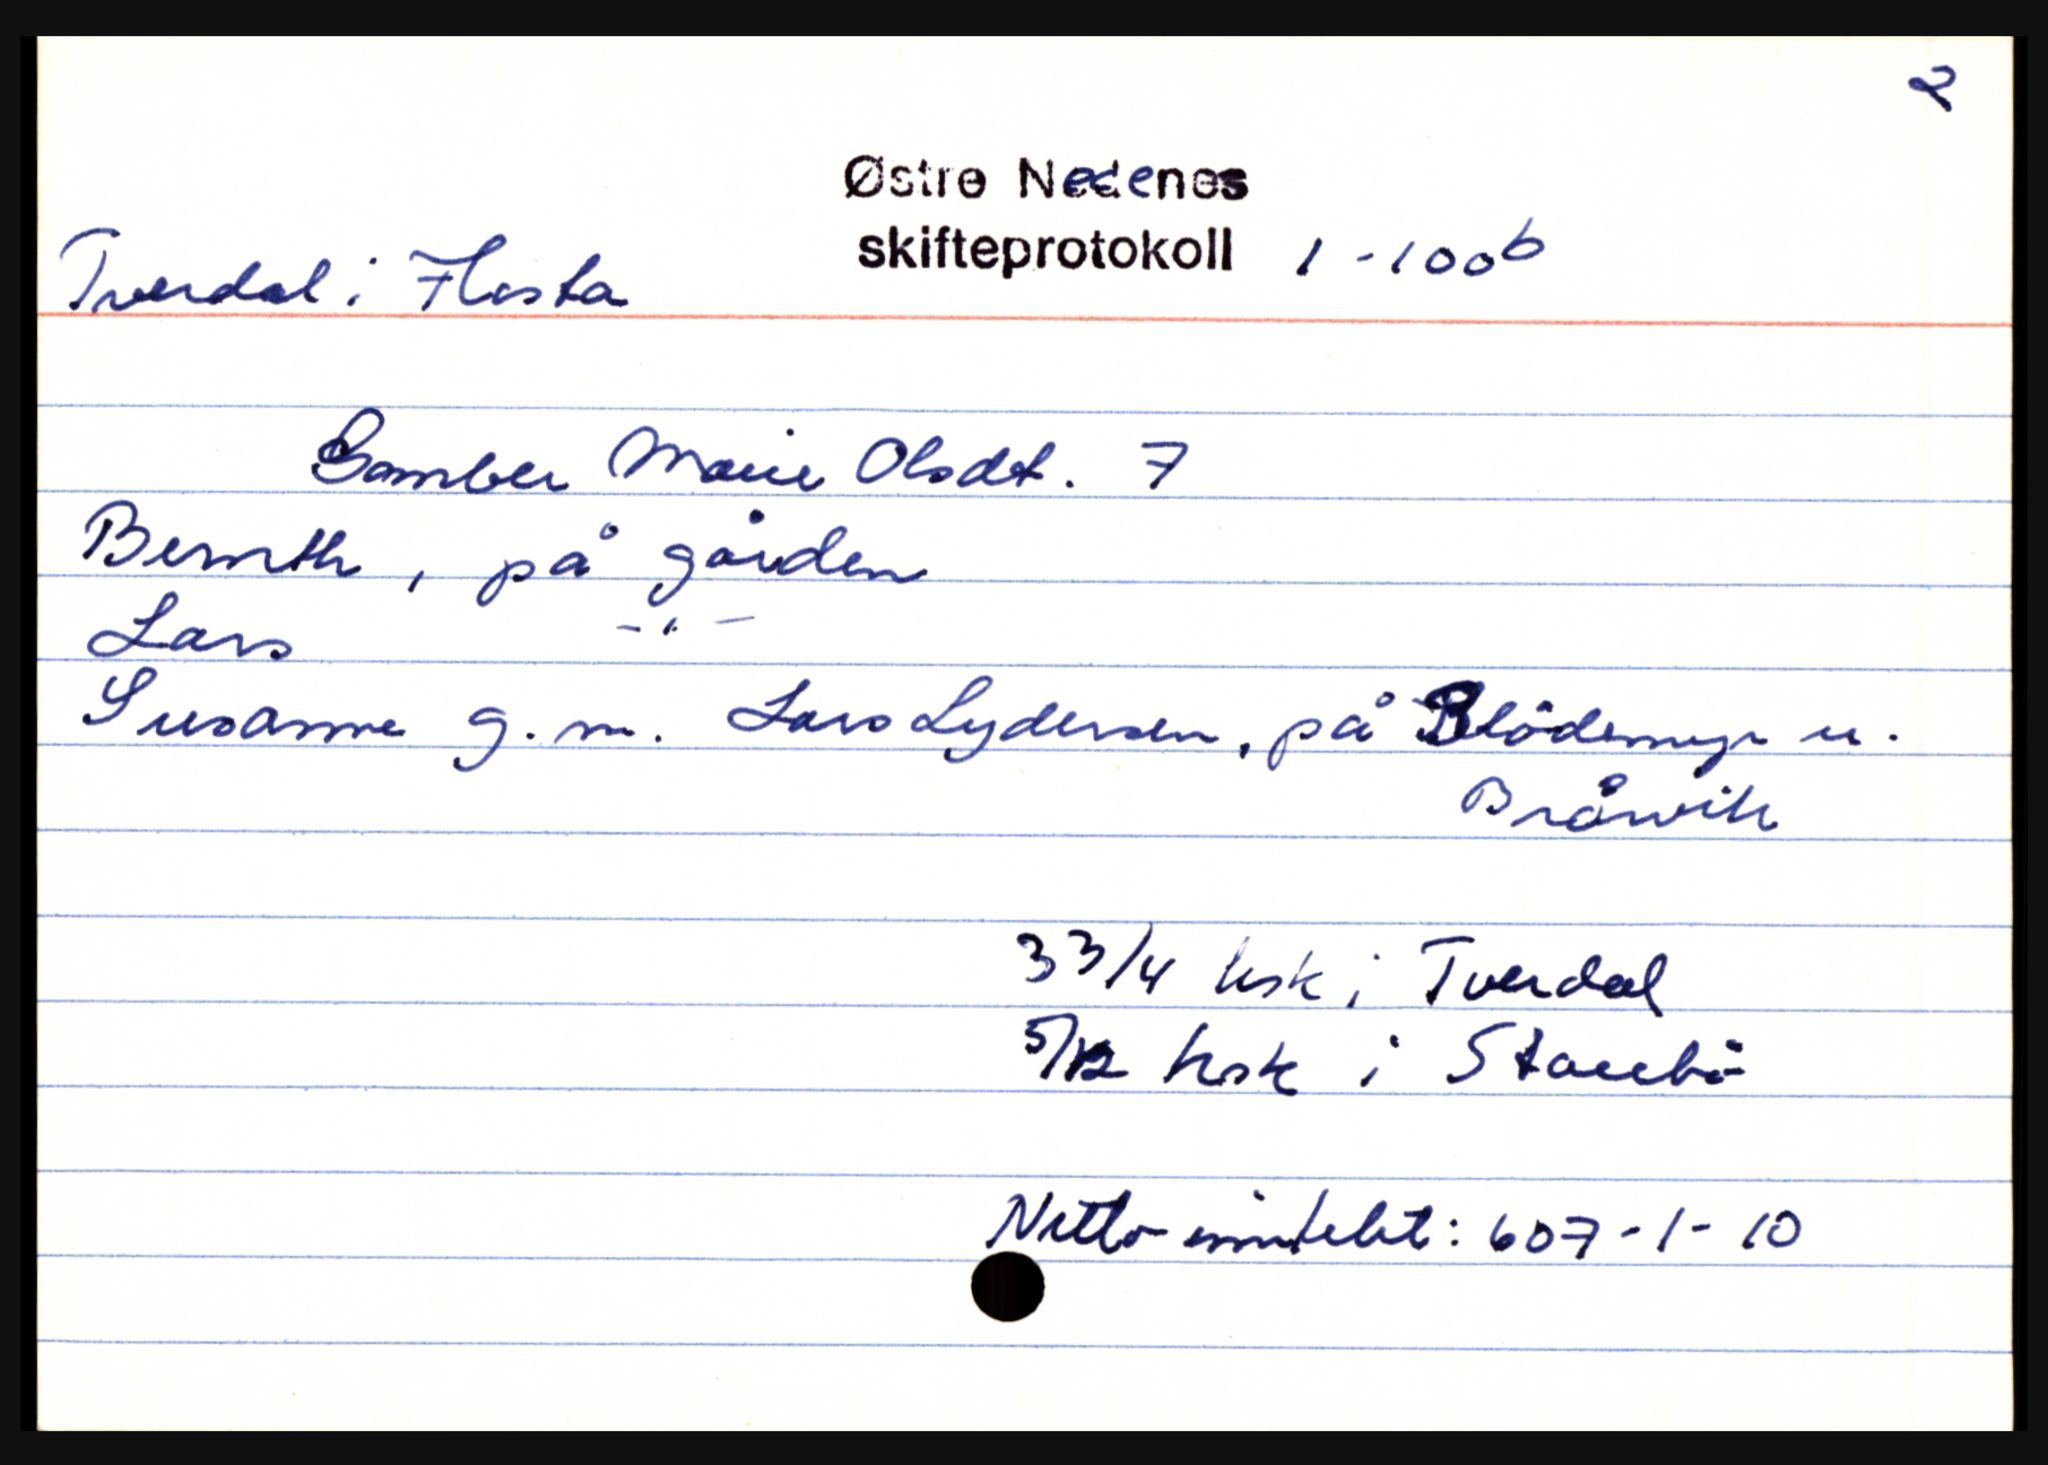 2
Østre Nedenes
skifteprotokoll 1-100b
Tverdal i Flosta
Gomber Marie Olsdt. 7
Bernth, på gården
Lars -"-
Susanne g.m. Lars Lydersen, på Blödemyr u.
Bråvik
3 3/4 hsk i Tverdal
5/12 hsk i Stauebö
Netto inntekt: 607-1-10